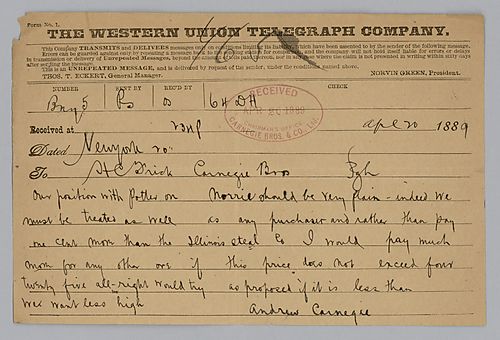 Form No. 1.
THE WESTERN UNION TELEGRAPH COMPANY.
This Company TRANSMITS and DELIVERS messages only on conditions limiting its liability, which have been assented to by the sender of the following message.
Errors can be guarded against only by repeating a message back to the sending station for comparison, and the company will not hold itself liable for errors or delays
in transmission or delivery of Unrepeated Messages, beyond the amount of tolls paid thereon, nor in any case where the claim is not presented in writing within sixty days
after sending the message.
This is an UNREPEATED MESSAGE, and is delivered by request of the sender, under the conditions named above.
THOS. T. ECKERT, General Manager. NORVIN GREEN, President.
NUMBER SENT BY REC'D BY CHECK
64 DH
RECEIVED
APR 20 1889
CHAIRMAN'S OFFICE
CARNEGIE BROS. & CO.
Received at Apl 20 1889
Dated New York 20
To H C Frick Carnegie Bros Pgh
Our position with Potter on Norrie should be very plain - indeed we
must be treated as well as any purchaser and rather than pay
one cent more than the Illinois steel Co I would pay much
more for any other ore if this price does not exceed four
twenty five all-right would try as proposed if it is less than
we want less high
Andrew Carnegie